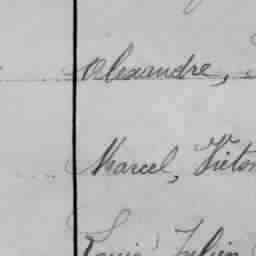 Alexandre,
Marcel, Victor
Louis Julien